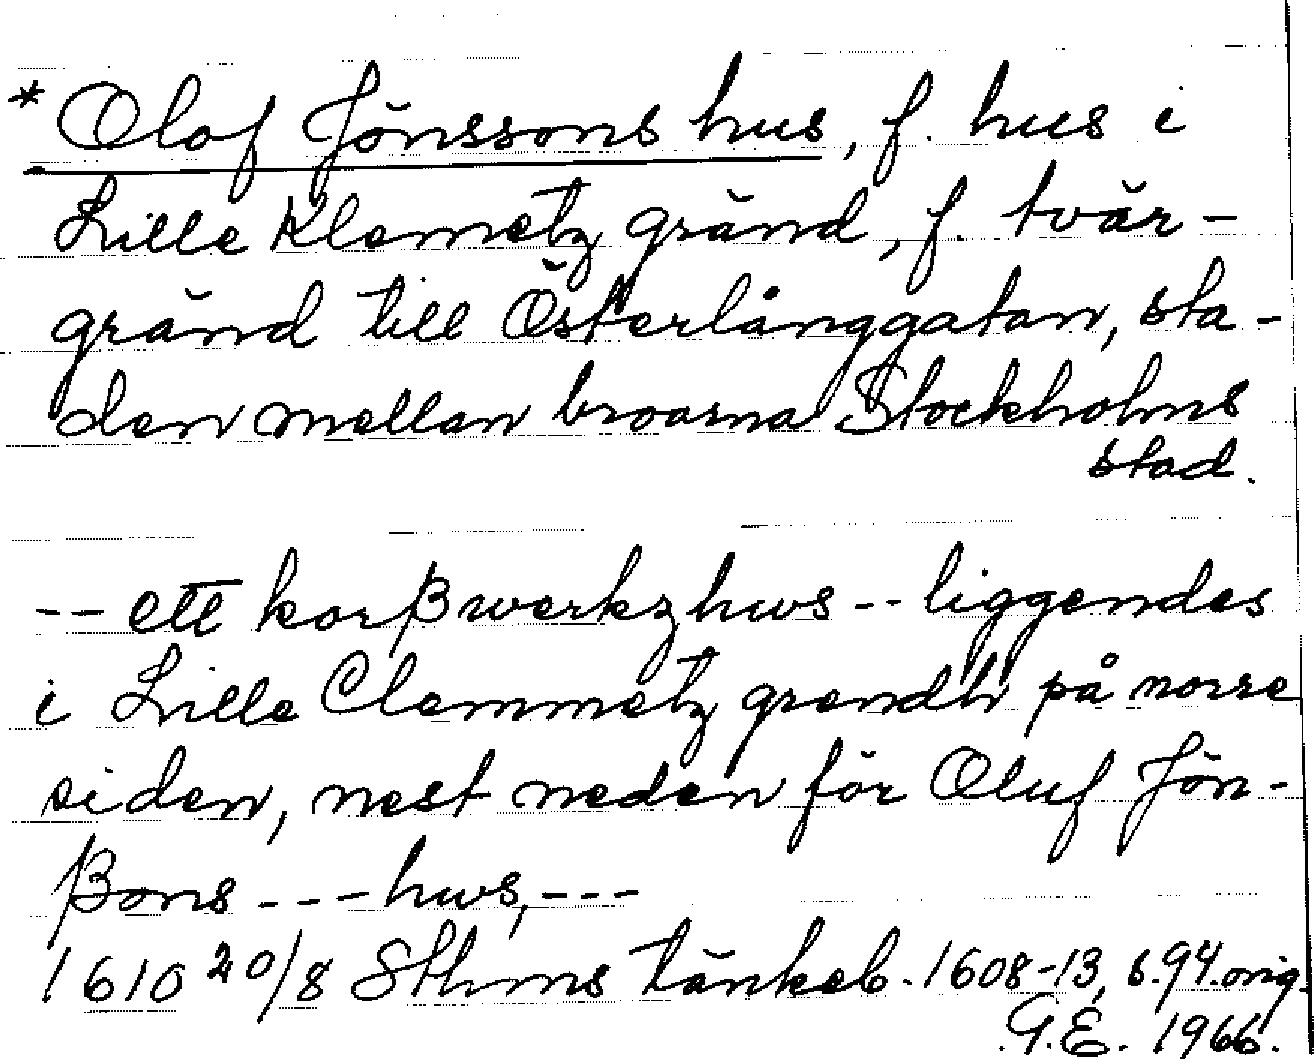 * Olof Jönssons hus, f. hus i
Lille Klemetz gränd, f. tvär-
gränd till Österlånggatan, sta-
den mellan broarna Stockholms
stad.
-- ett korßwerkzhws -- liggendes
i Lille Clemmetz grendh på norre
siden, nest neden för Oluf Jön-
ßons --- hws, ---
1610 20/8 Sthms tänkeb. 1608-13, s. 94. orig.
G.E. 1966.